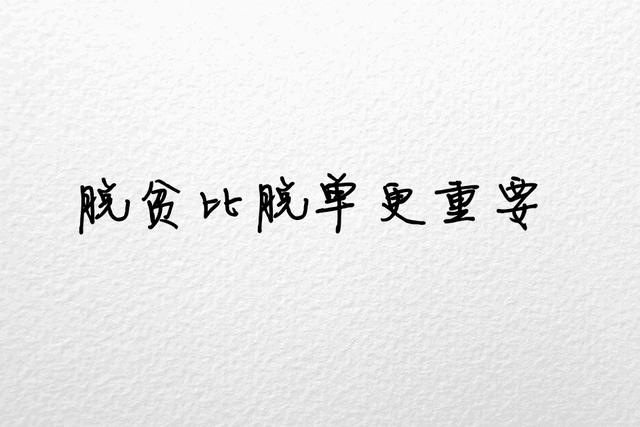 脱贫比脱单更重要